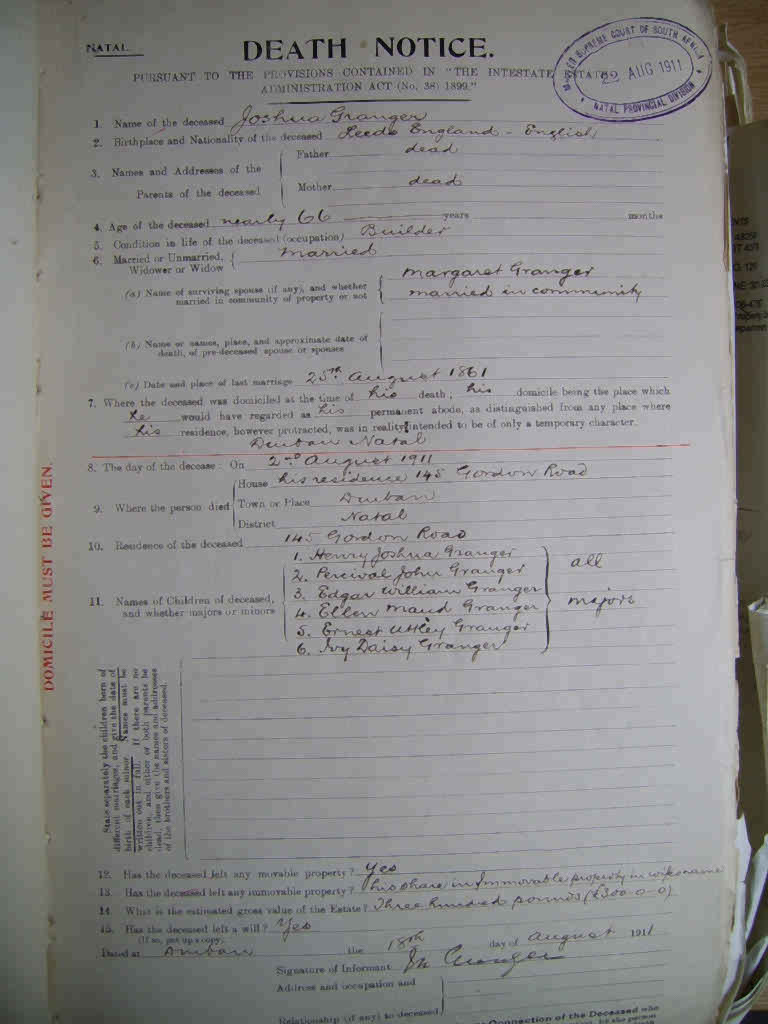 NATAL.
DEATH NOTICE.
PURSUANT TO THE PROVISIONS CONTAINED IN "THE INTESTATE ESTATES
ADMINISTRATION ACT (No. 38) 1899."
SUPREME COURT OF SOUTH AFRICA
22 AUG 1911
NATAL PROVINCIAL DIVISION
1. Name of the deceased Joshua Granger
2. Birthplace and Nationality of the deceased Leeds England - English
3. Names and Addresses of the Parents of the deceased
Father dead
Mother dead
4. Age of the deceased nearly 66 years months
5. Condition in life of the deceased (occupation) Builder
6. Married or Unmarried, Widower or Widow Married
(a) Name of surviving spouse (if any), and whether married in community of property or not
Margaret Granger
married in community
(b) Name or names, place, and approximate date of death, of pre-deceased spouse or spouses
(c) Date and place of last marriage 25th August 1861
7. Where the deceased was domiciled at the time of his death; his domicile being the place which
he would have regarded as his permanent abode, as distinguished from any place where
his residence, however protracted, was in reality intended to be of only a temporary character.
Durban Natal
8. The day of the decease: On 2nd August 1911
9. Where the person died
House his residence 145 Gordon Road
Town or Place Durban
District Natal
10. Residence of the deceased 145 Gordon Road
11. Names of Children of deceased, and whether majors or minors
1. Henry Joshua Granger
2. Percival John Granger
3. Edgar William Granger
4. Ellen Maud Granger
5. Ernest Uttley Granger
6. Ivy Daisy Granger
all
majors
DOMICILE MUST BE GIVEN.
State separately the children born of
different marriages, and give the date of
birth of each minor. Names must be
written out in full. If there are no
children, and either or both parents be
dead, then give the names and addresses
of the brothers and sisters of deceased.
12. Has the deceased left any movable property? Yes
13. Has the deceased left any immovable property? his share in Immovable property in wife's name
14. What is the estimated gross value of the Estate? Three hundred pounds (£300-0-0)
15. Has the deceased left a will? Yes
(If so, put up a copy)
Dated at Durban the 18th day of August 1911
Signature of Informant Granger
Address and occupation and
Relationship (if any) to deceased
Connection of the Deceased who